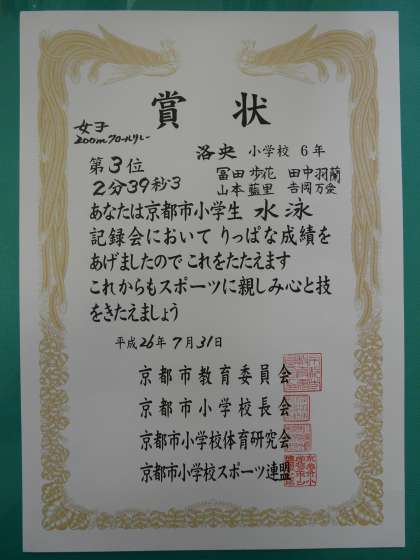 賞状
女子
200mフリーリレー
洛央 小学校 6年
第3位
冨田 歩花 田中 羽蘭
2分39秒3
山本 藍里 吉岡 万愛
あなたは京都市小学生 水泳
記録会において りっぱな成績を
あげましたので これをたたえます
これからもスポーツに親しみ心と技
をきたえましょう
平成26年7月31日
京都市教育委員会
京都市小学校長会
京都市小学校体育研究会
京都市小学校スポーツ連盟